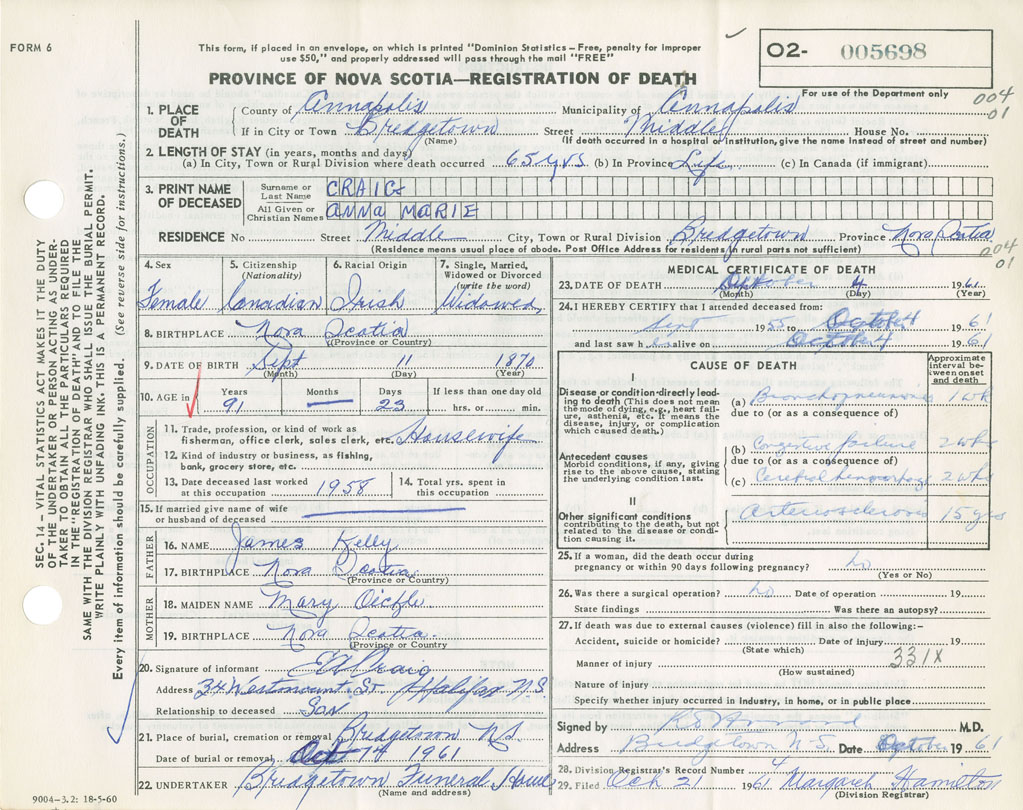 FORM 6
This form, if placed in an envelope, on which is printed "Dominion Statistics – Free, penalty for improper
use $50," and properly addressed will pass through the mail "FREE"
O2- 005698
PROVINCE OF NOVA SCOTIA—REGISTRATION OF DEATH
For use of the Department only
004
01
1. PLACE OF DEATH
County of Annapolis Municipality of Annapolis
If in City or Town Bridgetown Street Middle House No.
(Name) (If death occurred in a hospital or institution, give the name instead of street and number)
2. LENGTH OF STAY (in years, months and days)
(a) In City, Town or Rural Division where death occurred 65 yrs (b) In Province Life (c) In Canada (if immigrant)
3. PRINT NAME OF DECEASED
Surname or Last Name CRAIG
All Given or Christian Names ANNA MARIE
RESIDENCE No Street Middle City, Town or Rural Division Bridgetown Province Nova Scotia
(Residence means usual place of abode. Post Office Address for residents in rural parts not sufficient)
004
01
4. Sex
Female
5. Citizenship
(Nationality)
Canadian
6. Racial Origin
Irish
7. Single, Married,
Widowed or Divorced
(write the word)
Widowed
8. BIRTHPLACE Nova Scotia
(Province or Country)
9. DATE OF BIRTH Sept 11 1870
(Month) (Day) (Year)
10. AGE in
Years Months Days If less than one day old
91 — 23 hrs. or min.
OCCUPATION
11. Trade, profession, or kind of work as
fisherman, office clerk, sales clerk, etc. Housewife
12. Kind of industry or business, as fishing,
bank, grocery store, etc.
13. Date deceased last worked
at this occupation 1958
14. Total yrs. spent in
this occupation
15. If married give name of wife
or husband of deceased
FATHER
16. NAME James Kelly
17. BIRTHPLACE Nova Scotia
(Province or Country)
MOTHER
18. MAIDEN NAME Mary Oickle
19. BIRTHPLACE Nova Scotia
(Province or Country)
20. Signature of informant Craig
Address 34 Westmount St Halifax N.S.
Relationship to deceased Son
21. Place of burial, cremation or removal Bridgetown N.S.
Date of burial or removal Oct 1961
22. UNDERTAKER Bridgetown Funeral Home
(Name and address)
9004—3.2: 18-5-60
MEDICAL CERTIFICATE OF DEATH
23. DATE OF DEATH October 4 1961
(Month) (Day) (Year)
24. I HEREBY CERTIFY that I attended deceased from:
Sept 1955 to October 4 1961
and last saw h alive on October 4 1961
CAUSE OF DEATH
Approximate
interval be-
tween onset
and death
I
Disease or condition directly lead-
ing to death (This does not mean
the mode of dying, e.g., heart fail-
ure, asthenia, etc. It means the
disease, injury, or complication
which caused death.)
(a) Bronchopneumonia 1 wk
due to (or as a consequence of)
Antecedent causes
Morbid conditions, if any, giving
rise to the above cause, stating
the underlying condition last.
(b) Congestive failure 2 wks
due to (or as a consequence of)
(c) Cerebral hemorrhage 2 wks
II
Other significant conditions
contributing to the death, but not
related to the disease or condi-
tion causing it.
Arteriosclerosis 15 yrs
25. If a woman, did the death occur during
pregnancy or within 90 days following pregnancy? no
(Yes or No)
26. Was there a surgical operation? no Date of operation 19
State findings Was there an autopsy?
27. If death was due to external causes (violence) fill in also the following:-
Accident, suicide or homicide? Date of injury 19
(State which)
331X
Manner of injury
(How sustained)
Nature of injury
Specify whether injury occurred in Industry, in home, or in public place
Signed by M.D.
Address Bridgetown N.S. Date October 1961
28. Division Registrar's Record Number
29. Filed Oct 21 1961 Margaret Hamilton
(Division Registrar)
SEC. 14 – VITAL STATISTICS ACT MAKES IT THE DUTY
OF THE UNDERTAKER OR PERSON ACTING AS UNDER-
TAKER TO OBTAIN ALL THE PARTICULARS REQUIRED
IN THE "REGISTRATION OF DEATH" AND TO FILE THE
SAME WITH THE DIVISION REGISTRAR WHO SHALL ISSUE THE BURIAL PERMIT.
WRITE PLAINLY WITH UNFADING INK. THIS IS A PERMANENT RECORD.
Every item of information should be carefully supplied. (See reverse side for instructions.)